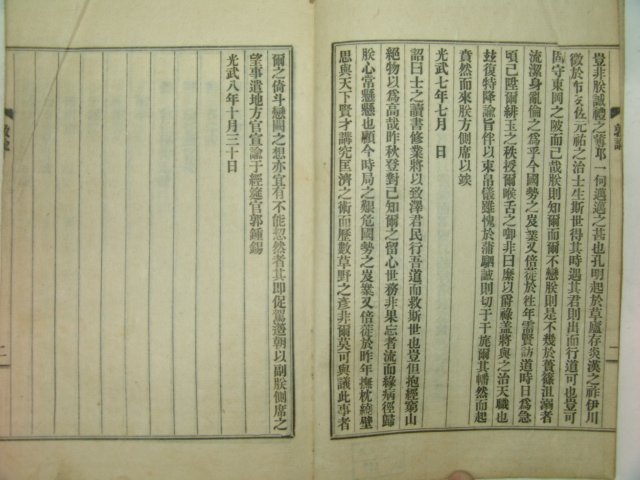 豈非朕誠禮之霱耶一何邁邁之甚也孔明起於草廬存炎漢之祚伊川
徵於 元祐之治士生斯世得其時遇其君則出而行道可也豈可
固守東岡之陂而已哉朕則知爾而爾不戀朕則是不幾於蕢篠沮溺者
流潔身亂倫之爲乎今國勢之岌業又倍蓰於往年需賢訪道時日爲急
頃已陞爾緋玉之秩授爾喉舌之卿非曰縻以爵祿盖將與之治天職也
玆復特降諭旨伴以束帛儀雖愧於蒲駟誠則切于干旄爾其幡然而起
賁然而來朕方側席以竢
光武七年七月 日
詔曰士之讀書修業將以致澤君民行吾道而救斯世也豈但抱經窮山
絕物以爲高哉昨秋登對已知爾之留心世務非果忘者流而緣病徑歸
朕心常懸懸也顧今時局之艱危國勢之岌業又倍蓰於昨年撫枕繞壁
思與天下賢才講究匡濟之術而歷數草野之彥非爾莫可與議此事者
爾之倚斗戀闕之想亦宜有不能恝然者其即促駕造朝以副朕側席之
望事遣地方官宣諭于經筵官郭鍾錫
光武八年十月三十日